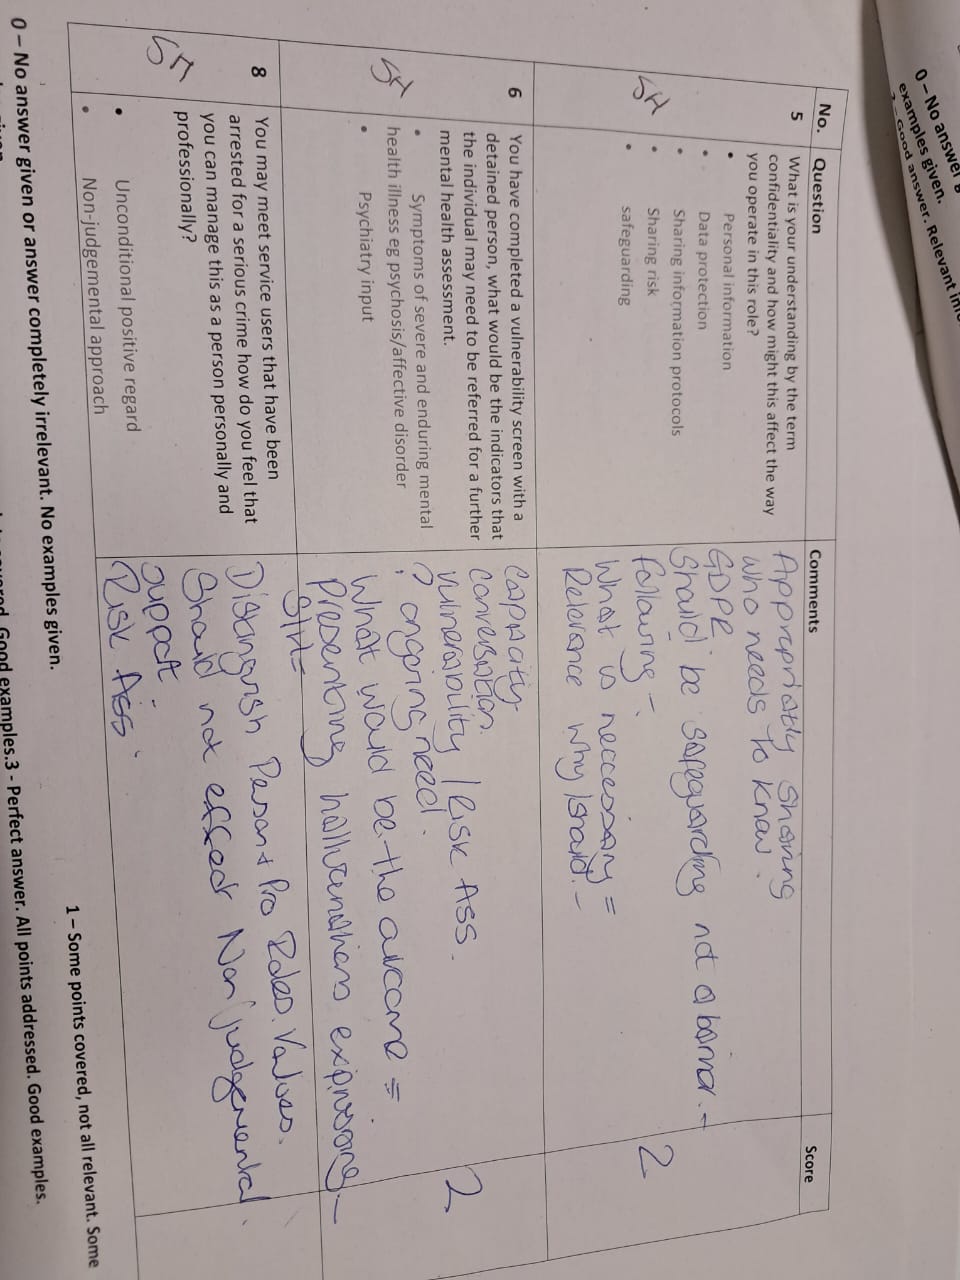 0 – No answer
examples given.
Good answer. Relevant
No.
Question
Comments
Score
5
What is your understanding by the term
confidentiality and how might this affect the way
you operate in this role?
• Personal information
• Data protection
• Sharing information protocols
• Sharing risk
• safeguarding
SH
Appropriatly sharing
who needs to know.
GDPR
Should be safeguarding not a barrier.
following -
What is neccessary =
Relevance why/should. -
2
6
You have completed a vulnerability screen with a
detained person, what would be the indicators that
the individual may need to be referred for a further
mental health assessment.
• Symptoms of severe and enduring mental
health illness eg psychosis/affective disorder
• Psychiatry input
SH
Capacity
Conversation.
Vulnerability / Risk Ass.
? ongoing need.
What would be the outcome =
Presenting hallucinations expressing
2
8
You may meet service users that have been
arrested for a serious crime how do you feel that
you can manage this as a person personally and
professionally?
• Unconditional positive regard
• Non-judgemental approach
SH
Distingush Person + Pro Roles. Values.
Should not effect Non judgemental.
Support.
Risk Ass.
0 – No answer given or answer completely irrelevant. No examples given.
1 – Some points covered, not all relevant. Some
Good examples.3 - Perfect answer. All points addressed. Good examples.